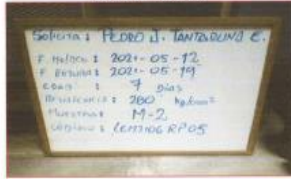 Solicita: PEDRO J. TANTADUNO E.
F. Moldeo: 2021-05-12
F. Rotura: 2021-05-19
Edad: 7 Días
Resistencia: 280 kg/cm²
Muestra: M-2
Código: LEM2106RP05